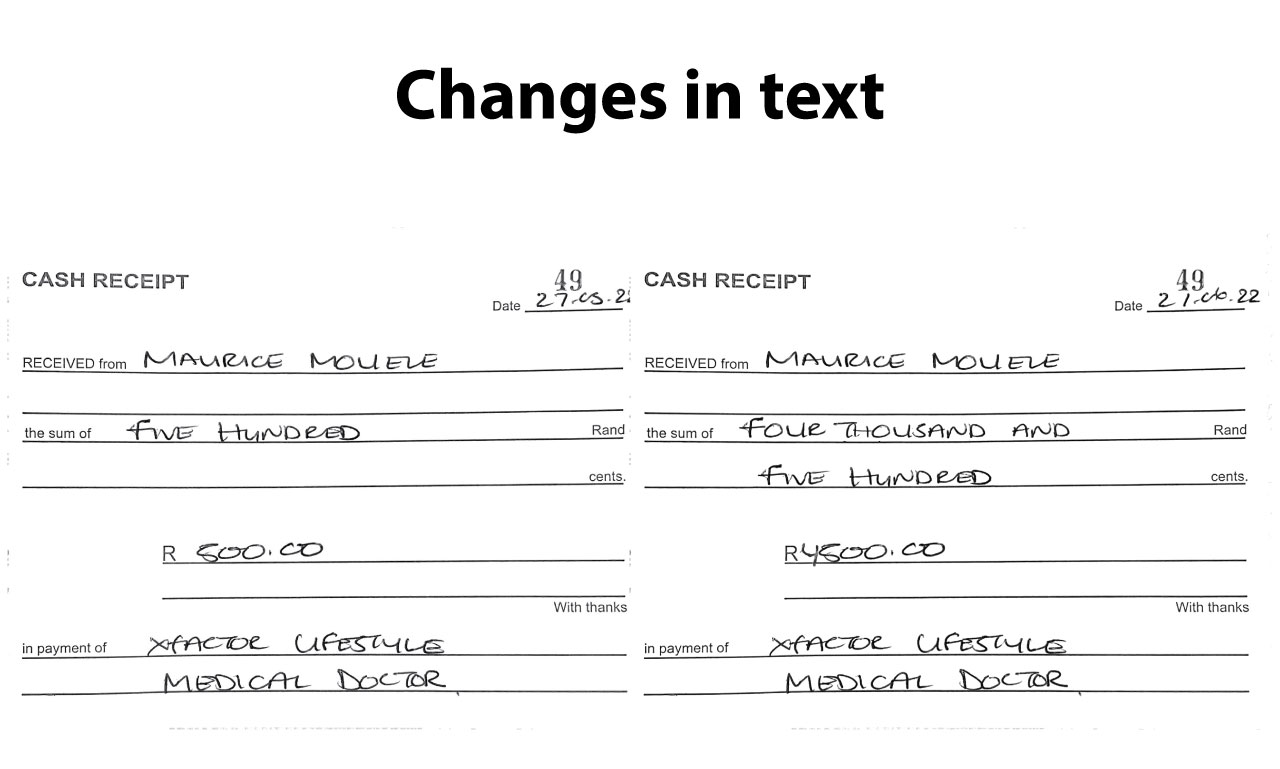 Changes in text
CASH RECEIPT
49
Date 27.05.2
RECEIVED from MAURICE MOUELE
the sum of FIVE HUNDRED Rand
cents.
R 500.00
With thanks
in payment of XFACTOR LIFESTYLE
MEDICAL DOCTOR
CASH RECEIPT
49
Date 21.06.22
RECEIVED from MAURICE MOUELE
the sum of FOUR THOUSAND AND Rand
FIVE HUNDRED cents.
R4500.00
With thanks
in payment of XFACTOR LIFESTYLE
MEDICAL DOCTOR